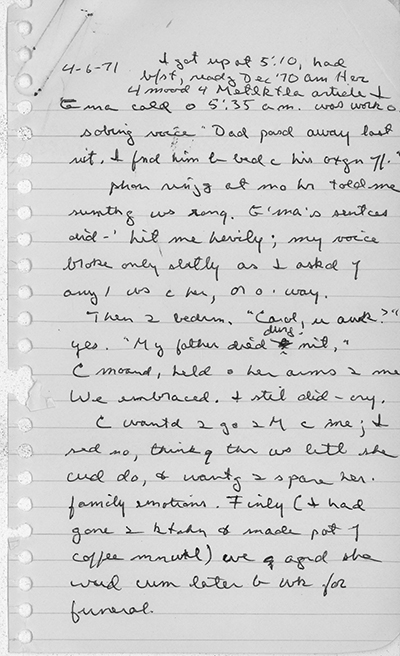 4-6-71 I got up at 5:10, had
bfst, readg Dec '70 am Her
4 mood 4 Metlktla article &
E'ma cald @ 5:35 a.m. was wok o
sobing voice "Dad pasd away last
nit. I fnd him n bed c his oxgn
phon ringg at mo hr told me
sumthg ws rong. E'ma's sentces
did-' hit me hevily; my voice
broke only slitly as I askd if
any1 ws c her, or o. way.
Then 2 bedrm. "Carol, u awk?"
yes. "My father died durg nit,"
C moand, held o her arms 2 me
We embraced. I stil did- cry.
C wantd 2 go 2 M c me; I
sed no, thinkg thr ws litl she
cud do, & wantg 2 spare her.
family emotions. Finly (I had
gone 2 ktchn & made pot of
coffee mnwhl) we agrd she
wud cum later n wk for
funeral.